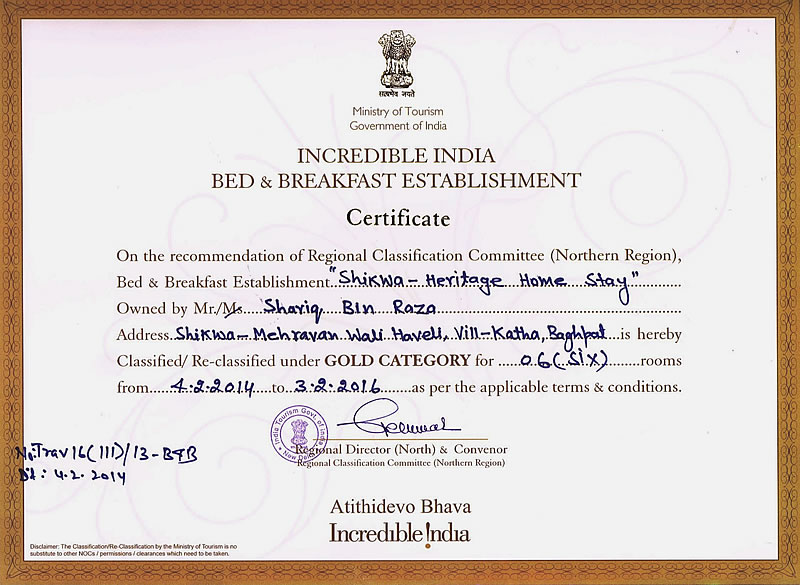 सत्यमेव जयते
Ministry of Tourism
Government of India
INCREDIBLE INDIA
BED & BREAKFAST ESTABLISHMENT
Certificate
On the recommendation of Regional Classification Committee (Northern Region),
Bed & Breakfast Establishment "Shikwa - Heritage Home Stay"
Owned by Mr./Ms. Shariq Bin Raza
Address Shikwa-Mehravan Wali Haveli, Vill-Katha, Baghpat is hereby
Classified/ Re-classified under GOLD CATEGORY for 06 (Six) rooms
from 4.2.2014 to 3.2.2016 as per the applicable terms & conditions.
India Tourism Govt. of India
New Delhi
Regional Director (North) & Convenor
Regional Classification Committee (Northern Region)
No: Trav 16(III)/13-B&B
Dt: 4.2.2014
Atithidevo Bhava
Incredible !ndia
Disclaimer: The Classification/Re-Classification by the Ministry of Tourism is no
substitute to other NOCs / permissions / clearances which need to be taken.